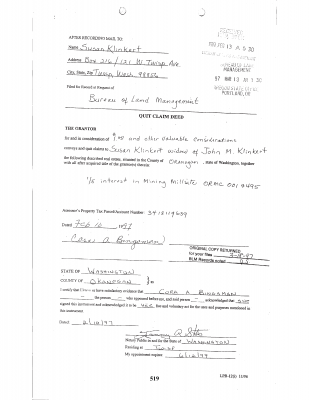 AFTER RECORDING MAIL TO:
Name Susan Klinkert
Address Box 216/121 W. Twisp Ave
City, State, Zip Twisp, Wash 98856
Filed for Record at Request of
Bureau of Land Management
1997 FEB 13 A 9:30
MANAGEMENT
97 MAR 13 AM 1:30
OREGON STATE OFFICE
PORTLAND, OR
QUIT CLAIM DEED
THE GRANTOR
for and in consideration of and other valuable considerations
conveys and quit claims to Susan Klinkert widow of John M. Klinkert
the following described real estate, situated in the County of Okanogan, State of Washington, together
with all after acquired title of the grantor(s) therein:
1/5 interest in Mining Millsite ORMC 0019495
Assessor's Property Tax Parcel/Account Number: 3412119609
Dated Feb 10 1997
ORIGINAL COPY RETURNED
for your files
BLM Records noted
STATE OF WASHINGTON
COUNTY OF OKANOGAN } ss
I certify that I know or have satisfactory evidence that CORA A BINGAMAN
the person who appeared before me, and said person acknowledged that SHE
signed this instrument and acknowledged it to be HER free and voluntary act for the uses and purposes mentioned in
this instrument.
Dated: 2/10/97
Notary Public in and for the State of WASHINGTON
Residing at TWISP
My appointment expires:
519
LPB-12(i) 11/96